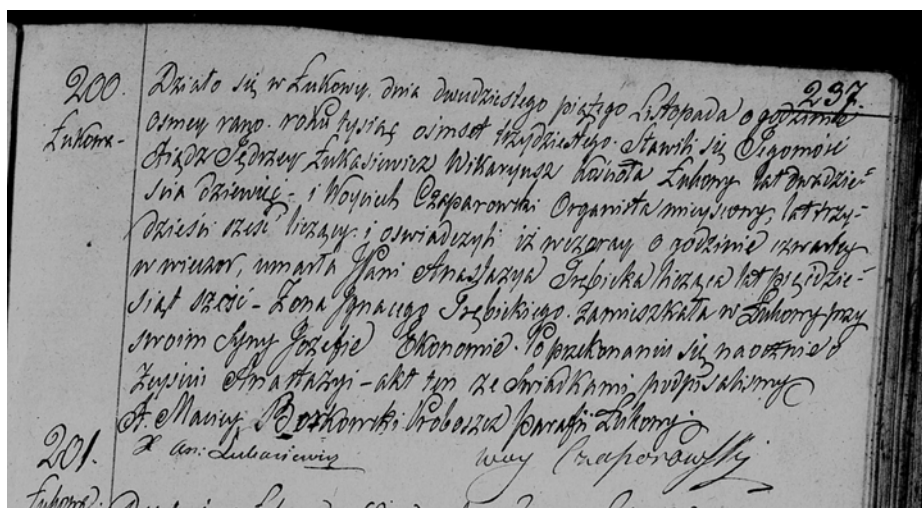 237.
200.
Łukowa -
Działo się w Łukowy. dnia dwudziestego piątego Listopada o godzinie
osmey rano. roku tysiąc ośmset trzydziestego. Stawili się Jegomość
Xiądz Jędrzey Łukasiewicz Wikaryusz Kościoła Łukowy lat dwadzie-
scia dziewięć - i Woyciech Czaparowski Organista mieyscowy, lat trzy-
dzieści sześć liczący. i oswiadczyli iż wczoray o godzinie czwartey
w wieczor, umarła JPani Anastazya Trębicka licząca lat pięćdzie-
siąt sześć - Zona Jgnacego Trębickiego. zamieszkała w Łukowy przy
swoim Synu Jozefie Ekonomie. Po przekonaniu się naocznie o
Zeyściu Anastazyi - akt ten ze Swiadkami podpisalismy
X. Maciey Borkowski Proboszcz parafii Łukowy
X An: Łukasiewicz Woy Czaporowski
201.
Łukowa.